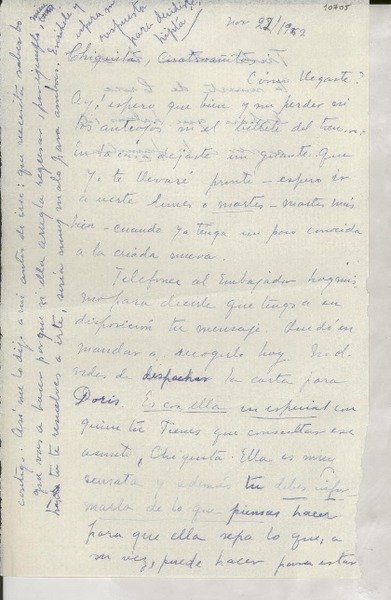 10705
nov 22/1952
Chiquita,
Cómo llegaste?
Ay, espero que bien y sin perder ni
los anteojos ni el billete del tren....
En la casa dejaste un guante que
yo te llevaré pronto – espero ir
a verte lunes o martes – martes más
bien – cuando ya tenga un poco conocida
a la criada nueva.
Telefoneé al Embajador hoy mis
mo para decirle que tengo a su
disposición tu mensaje. Quedó en
mandar a recogerlo hoy. No ol-
vides de despachar la carta para
Doris. Es con ella en especial con
quien tú tienes que consultar ese
asunto, Chiquita. Ella es muy
sensata y además tú debes infor-
marla de lo que piensas hacer
para que ella sepa lo que, a
su vez, puede hacer para estar
contigo. Así me lo dijo a mí antes de irse: que necesita saber lo
que vas a hacer porque si ella arregla regresar, por ejemplo,
y tú te resuelves a irte, sería muy malo para ambas. Escríbele y
espera su
respuesta
para decidirte,
hijita